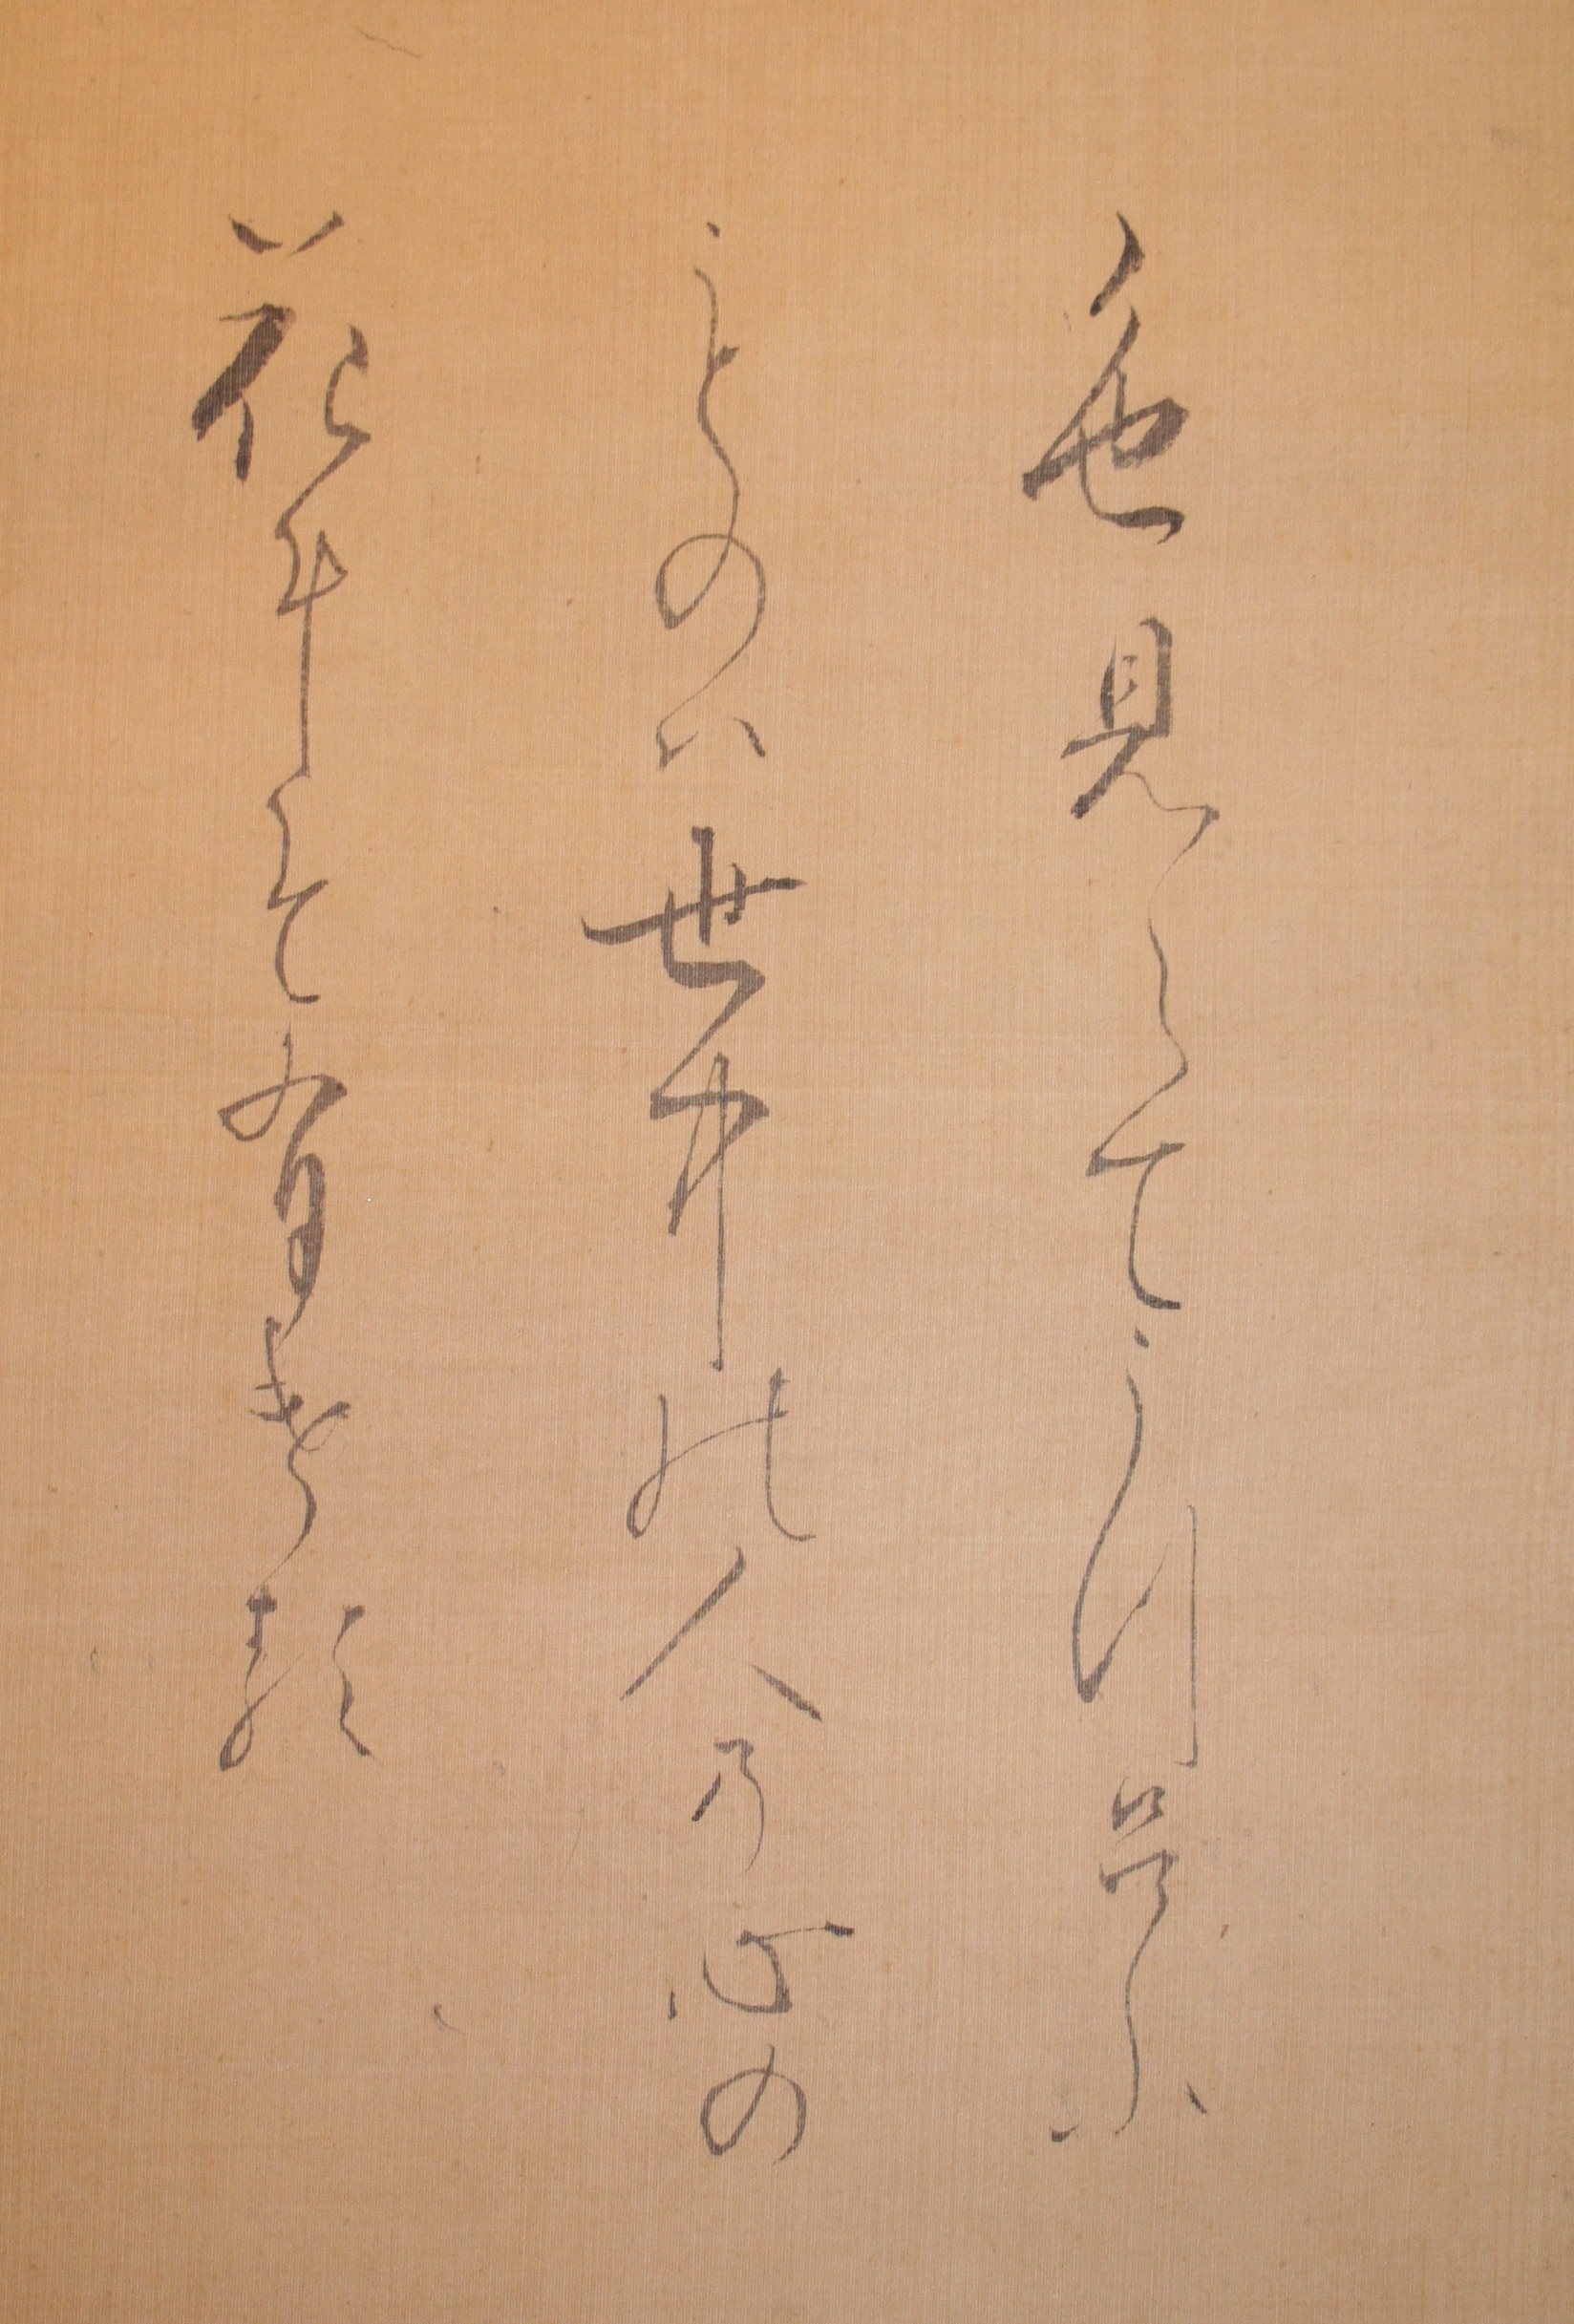 色見えてうつろふ
ものは世中の人の心の
花にそ有ける